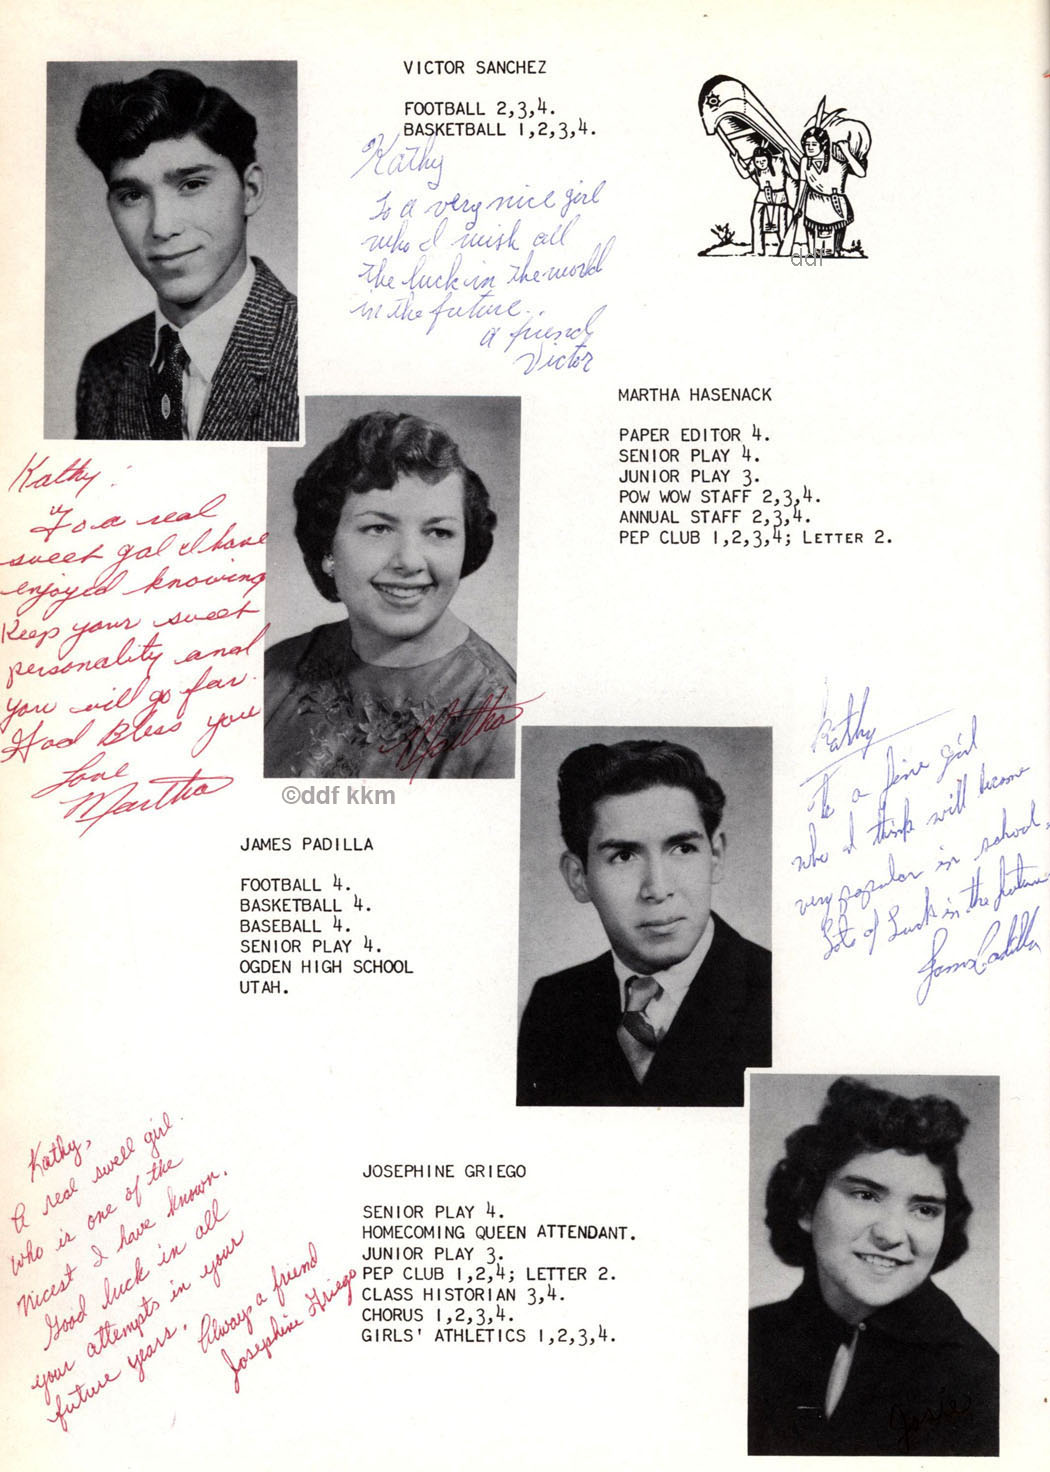 VICTOR SANCHEZ
FOOTBALL 2,3,4.
BASKETBALL 1,2,3,4.
Kathy
To a very nice girl
who I wish all
the luck in the world
in the future.
a friend
Victor
ddf
MARTHA HASENACK
PAPER EDITOR 4.
SENIOR PLAY 4.
JUNIOR PLAY 3.
POW WOW STAFF 2,3,4.
ANNUAL STAFF 2,3,4.
PEP CLUB 1,2,3,4; LETTER 2.
Kathy:
To a real
sweet gal I have
enjoyed knowing
Keep your sweet
personality and
you will go far.
God Bless you
Love
Martha
Martha
©ddf kkm
JAMES PADILLA
FOOTBALL 4.
BASKETBALL 4.
BASEBALL 4.
SENIOR PLAY 4.
OGDEN HIGH SCHOOL
UTAH.
Kathy
To a fine girl
who I think will become
very popular in school.
Lots of Luck in the future
James Padilla
JOSEPHINE GRIEGO
SENIOR PLAY 4.
HOMECOMING QUEEN ATTENDANT.
JUNIOR PLAY 3.
PEP CLUB 1,2,4; LETTER 2.
CLASS HISTORIAN 3,4.
CHORUS 1,2,3,4.
GIRLS' ATHLETICS 1,2,3,4.
Kathy,
A real swell girl.
who is one of the
nicest I have known.
Good luck in all
your attempts in your
future years.
Always a friend
Josephine Griego
Josie